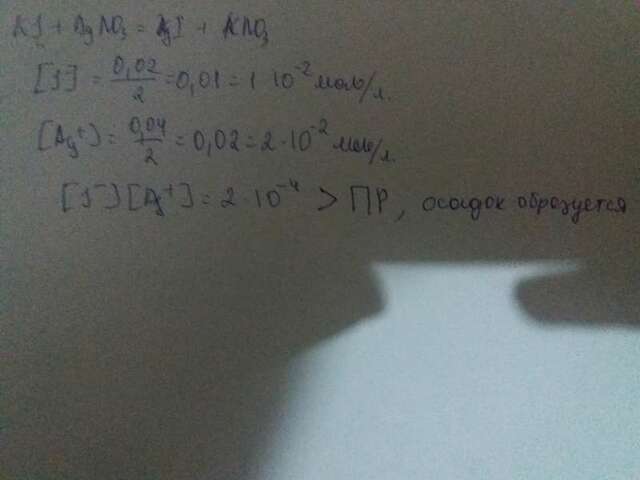 KJ + AgNO₃ = AgJ + KNO₃
[J] = 0,02/2 = 0,01 = 1 · 10⁻² моль/л.
[Ag⁺] = 0,04/2 = 0,02 = 2 · 10⁻² моль/л.
[J⁻][Ag⁺] = 2 · 10⁻⁴ > ПР, осадок образуется